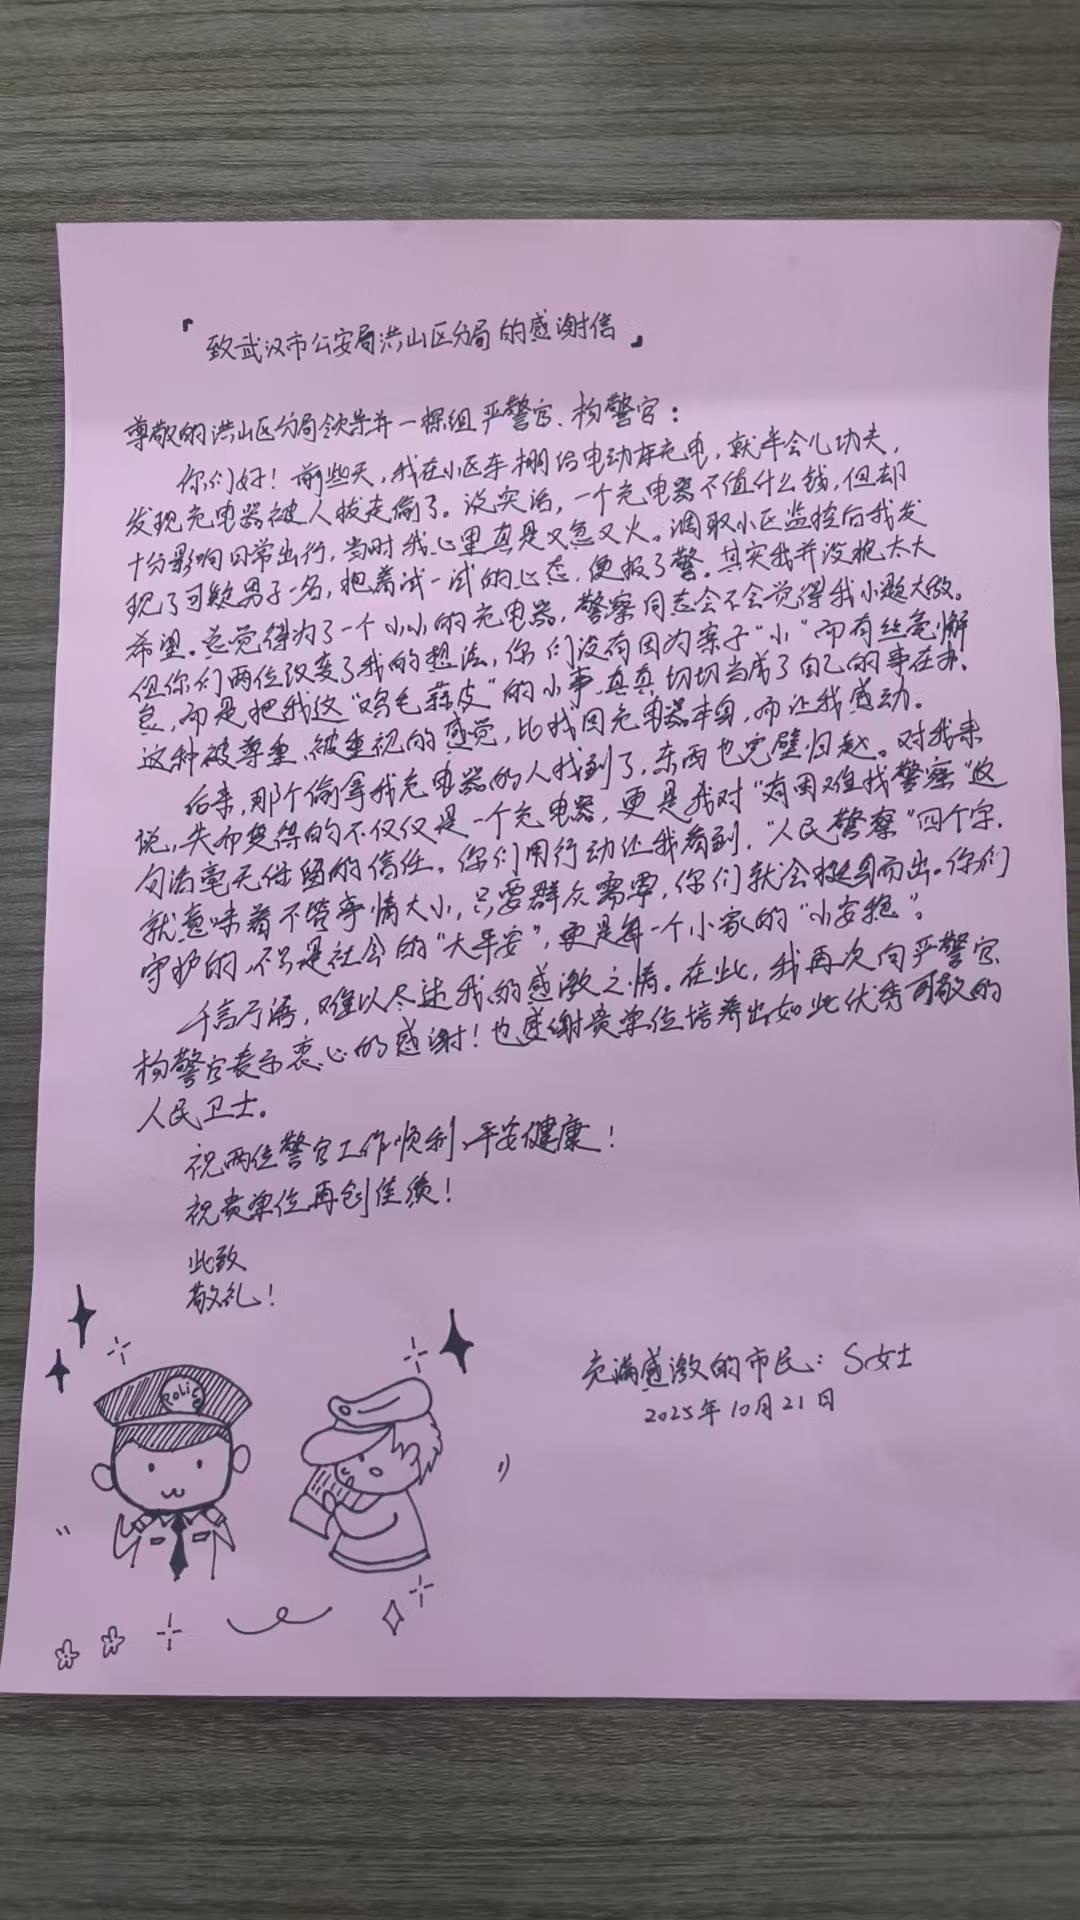 「致武汉市公安局洪山区分局的感谢信」
尊敬的洪山区分局领导并一探组严警官、杨警官：
你们好！前些天，我在小区车棚给电动车充电，就半会儿功夫，
发现充电器被人拔走偷了。说实话，一个充电器不值什么钱，但却
十分影响日常出行，当时我心里真是又急又火。调取小区监控后我发
现了可疑男子一名，抱着试一试的心态，便报了警。其实我并没抱太大
希望。总觉得为了一个小小的充电器，警察同志会不会觉得我小题大做。
但你们两位改变了我的想法，你们没有因为案子“小”而有丝毫懈
怠，而是把我这“鸡毛蒜皮”的小事，真真切切当成了自己的事在办、
这种被尊重、被重视的感觉，比找回充电器本身，而让我感动。
后来，那个偷拿我充电器的人找到了，东西也完璧归赵。对我来
说，失而复得的不仅仅是一个充电器，更是我对“有困难找警察”这
句话毫无保留的信任。你们用行动让我看到，“人民警察”四个字，
就意味着不管事情大小，只要群众需要，你们就会挺身而出。你们
守护的，不只是社会的“大平安”，更是每一个小家的“小安稳”。
千言万语，难以尽述我的感激之情。在此，我再次向严警官、
杨警官表示衷心的感谢！也感谢贵单位培养出如此优秀可敬的
人民卫士。
祝两位警官工作顺利、平安健康！
祝贵单位再创佳绩！
此致
敬礼！
充满感激的市民：S女士
2025年10月21日
POLICE